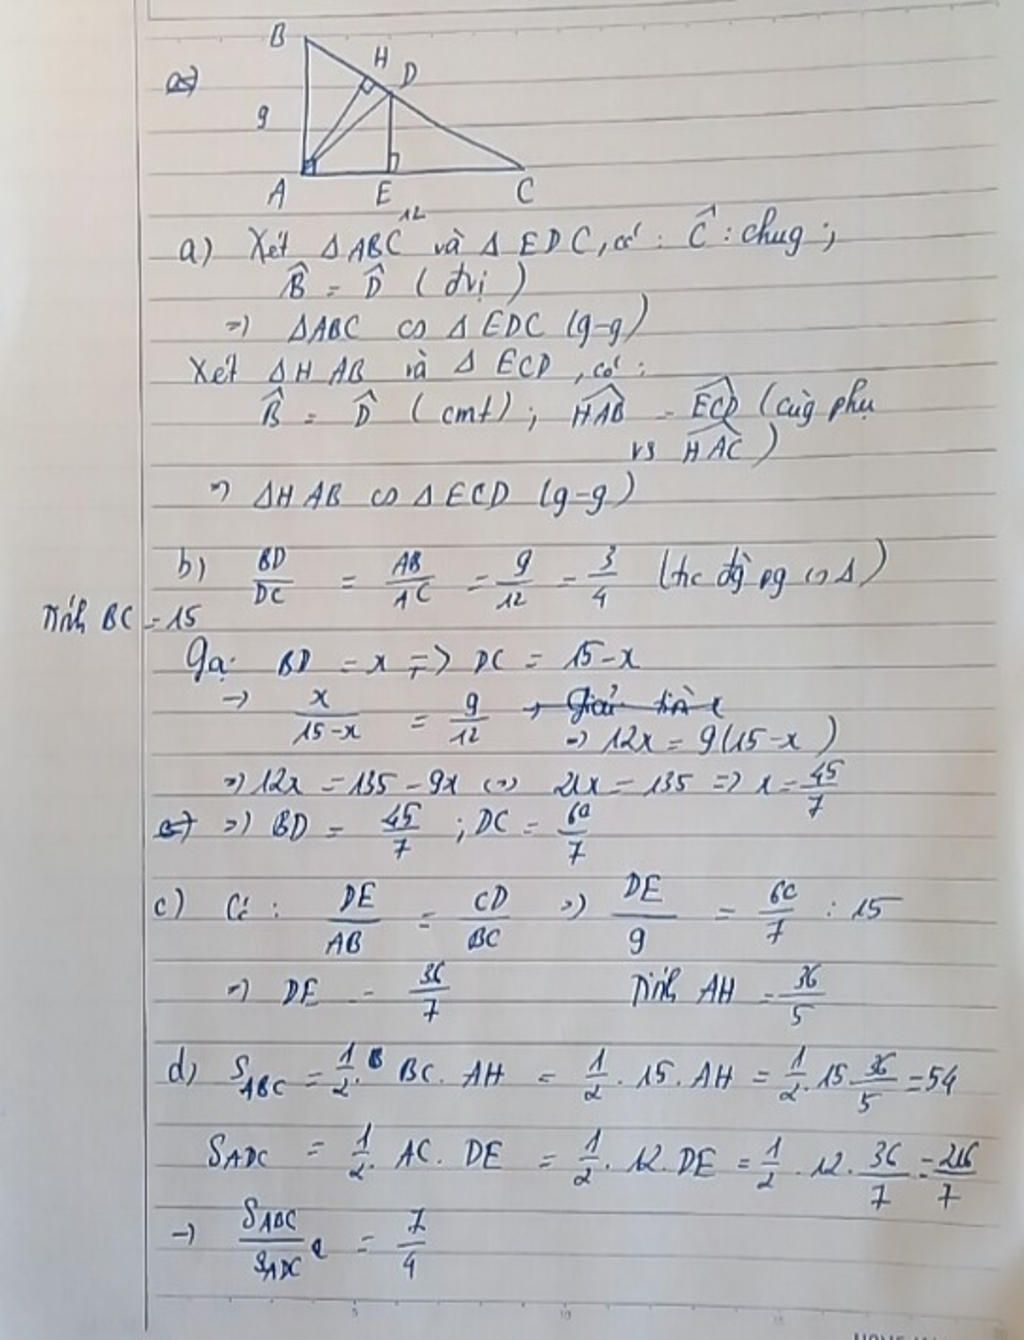 B
H D
9
A E C
12
a) Xét Δ ABC và Δ EDC, có: Ĉ: chug;
B̂ = D̂ (đvị)
=> ΔABC ∽ Δ EDC (g-g)
Xét Δ HAB và Δ ECD, có:
B̂ = D̂ (cmt); HAB^ = ECD^ (cùg phụ
vs HAC^)
=> ΔHAB ∽ Δ ECD (g-g)
b) BD/DC = AB/AC = 9/12 = 3/4 (t/c đg pg Δ)
Tính BC = 15
Gọi BD = x => DC = 15-x
-> x/(15-x) = 9/12
=> 12x = 9(15-x)
=> 12x = 135 - 9x <=> 21x = 135 => x = 45/7
=> BD = 45/7 ; DC = 60/7
c) Có: DE/AB = CD/BC => DE/9 = 60/7 : 15
=> DE = 36/7 Tính AH = 36/5
d) S_ABC = 1/2. BC. AH = 1/2 . 15. AH = 1/2. 15. 36/5 = 54
S_ADC = 1/2. AC. DE = 1/2. 12. DE = 1/2 . 12. 36/7 = 216/7
-> S_ABC/S_ADC = 7/4
5 10